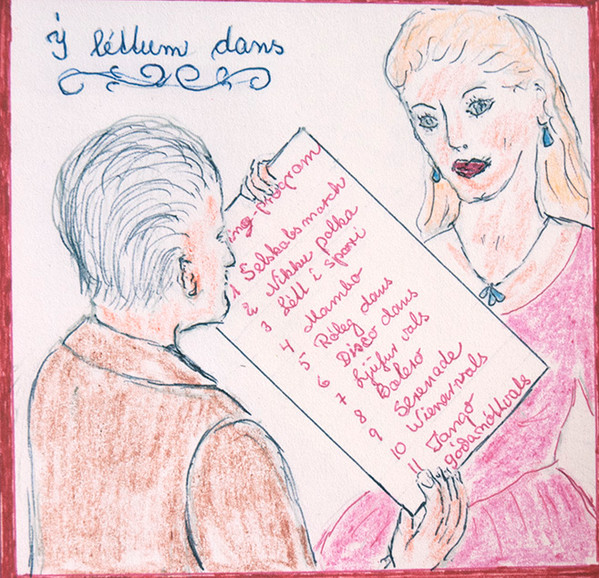 Ý léttum dans
ng-program
1 Selskabsmarch
2 Nikku polka
3 Létt i spori
4 Mambo
5 Róleg dans
6 Disco dans
7 Ljúfur vals
8 Bolero
9 Serenade
10 Wienervals
11 Tango
godanáttvals